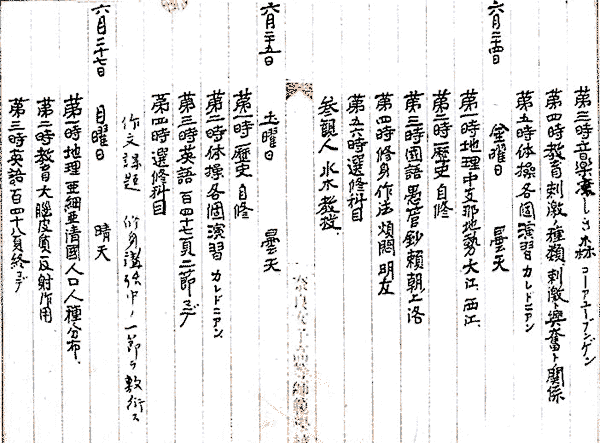 第三時音楽 凉しき木蔭 コーアユーブンゲン
第四時教育 刺激ノ種類 刺激ト興奮ト関係
第五時体操 各個演習 カレドニアン
六月二十四日 金曜日 曇天
第一時地理 中支那地勢 大江、西江、
第二時歴史 自修
第三時國語 愚管鈔 頼朝上洛
第四時修身作法 煩悶 朋友
第五六時選修科目
参観人 水木教授、
六月二十五日 土曜日 曇天
第一時歴史 自修
第二時体操 各個演習 カレドニアン
第三時英語 百四十七頁二節マデ
第四時選修科目
作文課題 修身講話中ノ一節ヲ敷衍ス
六月二十七日 月曜日 晴天
第一時地理 亜細亜清國人口人種分布、
第二時教育 大脳皮質 反射作用
第三時英語 百四十八頁終マデ